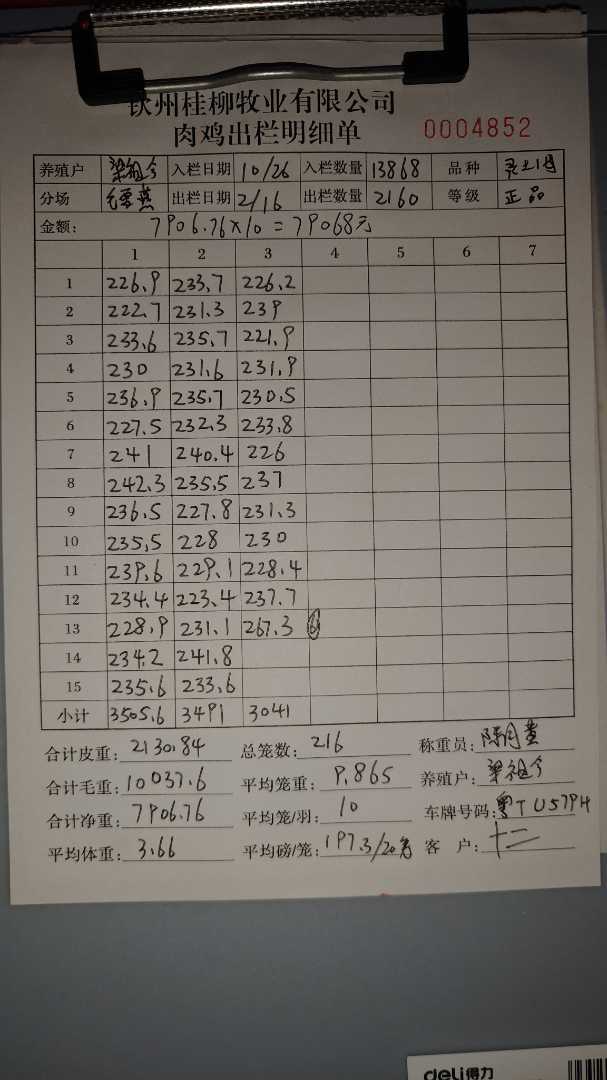 钦州桂柳牧业有限公司
肉鸡出栏明细单 0004852
养殖户 梁祖今 入栏日期 10/26 入栏数量 13868 品种
分场 出栏日期 2/16 出栏数量 2160 等级 正品
金额: 7906.76×10=79068元
1 2 3 4 5 6 7
1 226.9 233.7 226.2
2 222.7 231.3 239
3 233.6 235.7 221.9
4 230 231.6 231.9
5 236.9 235.7 230.5
6 227.5 232.3 233.8
7 241 240.4 226
8 242.3 235.5 237
9 236.5 227.8 231.3
10 235.5 228 230
11 239.6 229.1 228.4
12 234.4 223.4 237.7
13 228.9 231.1 267.3
14 234.2 241.8
15 235.6 233.6
小计 3505.6 3491 3041
合计皮重: 2130.84 总笼数: 216 称重员:
合计毛重: 10037.6 平均笼重: 9.865 养殖户: 梁祖今
合计净重: 7906.76 平均笼/羽: 10 车牌号码: 粤TU579H
平均体重: 3.66 平均磅/笼: 197.3/20 客 户: 十二
deli得力